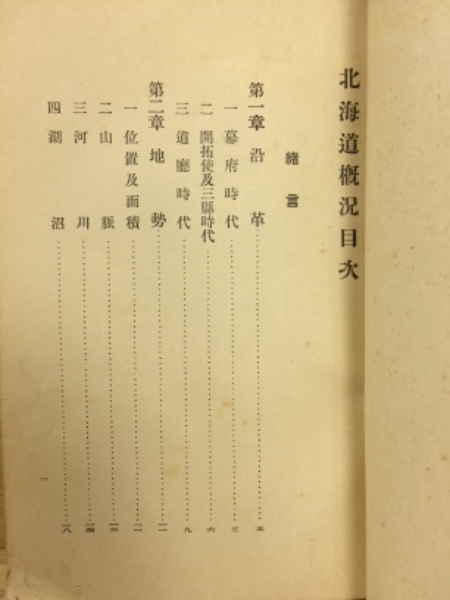 北海道概況目次
緒言
第一章 沿革
一 幕府時代
二 開拓使及三縣時代 六
三 道廳時代 九
第二章 地勢 一一
一 位置及面積 一一
二 山脈 一三
三 河川 一四
四 湖沼 一八
一